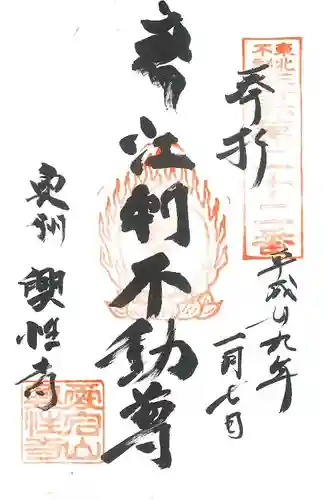 東北三十六不動尊二十二番
奉拝
平成廿九年
一月七日
江刺不動尊
奥州
興性寺
興性寺